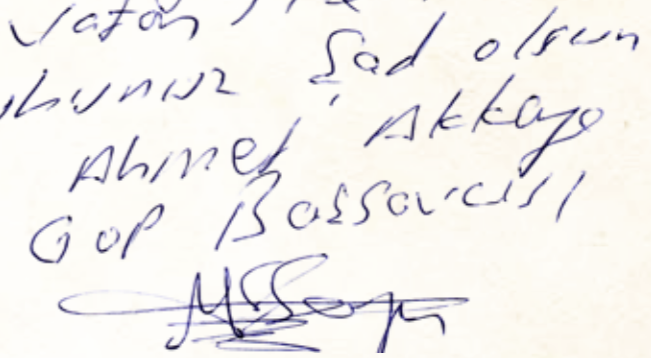 Vatan
ruhunuz Şad olsun
Ahmet Akkaya
GOP Başsavcısı